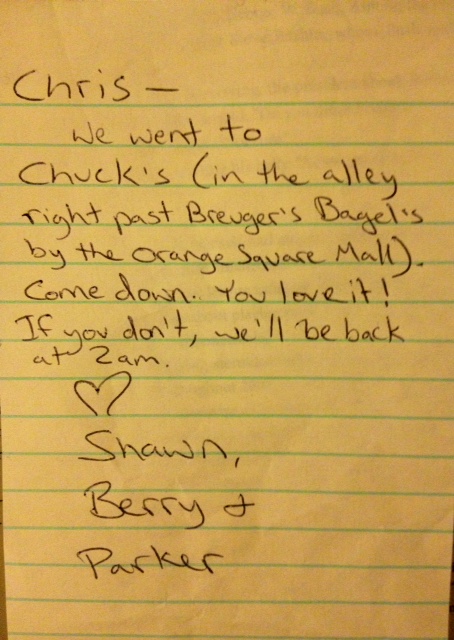 Chris —
We went to
Chuck's (in the alley
right past Breuger's Bagel's
by the Orange Square Mall).
Come down. You love it!
If you don't, we'll be back
at 2am.
♡
Shawn,
Berry &
Parker